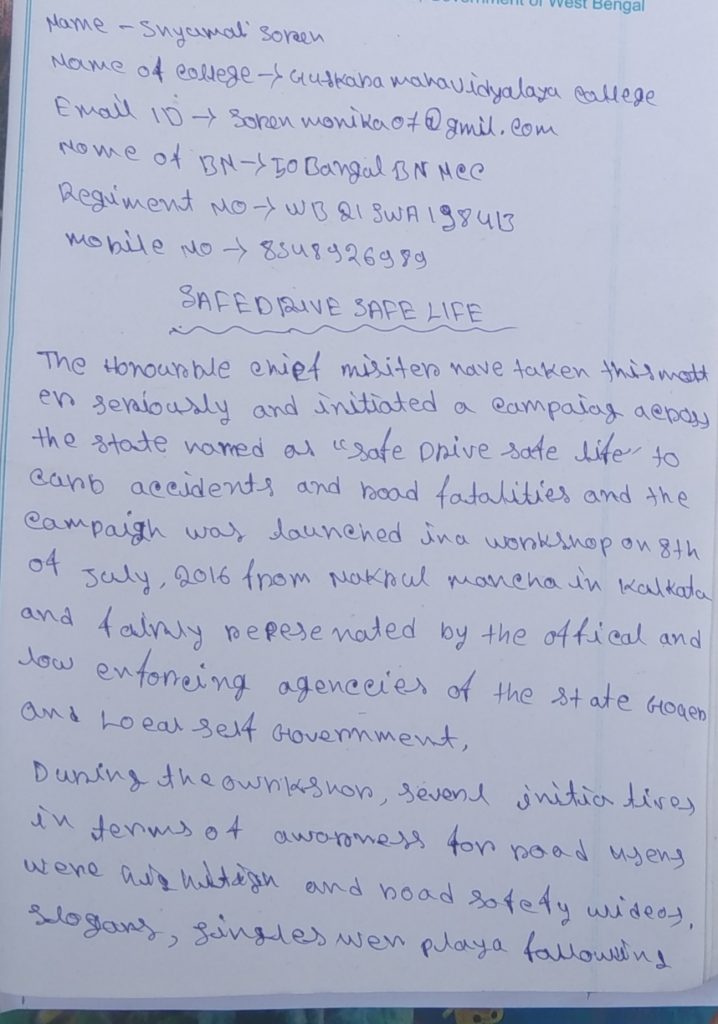 Government of West Bengal
Name - Snyamali Soren
Name of college → Guskara mahavidyalaya college
Email ID → Soren monika07@gmil.com
Nome of BN → 50 Bangal BN NCC
Regiment NO → WB21SWA19841B
mobile NO → 8348926989
SAFE DRIVE SAFE LIFE
The Honourable chief misiter have taken this matt
er seriously and initiated a campaiag across
the state named as "safe Drive safe life" to
carb accidents and road fatalities and the
campaigh was launched ina workshop on 8th
of July, 2016 from Nakrul mancha in Kalkata
and fairly reperesenated by the offical and
low enforcing agenceies of the state Goven
and Local self Government,
During the ownkshop, severl initia tives
in terms of awarness for road users
were and road sofety wideos,
slogans, jingles wer playa following